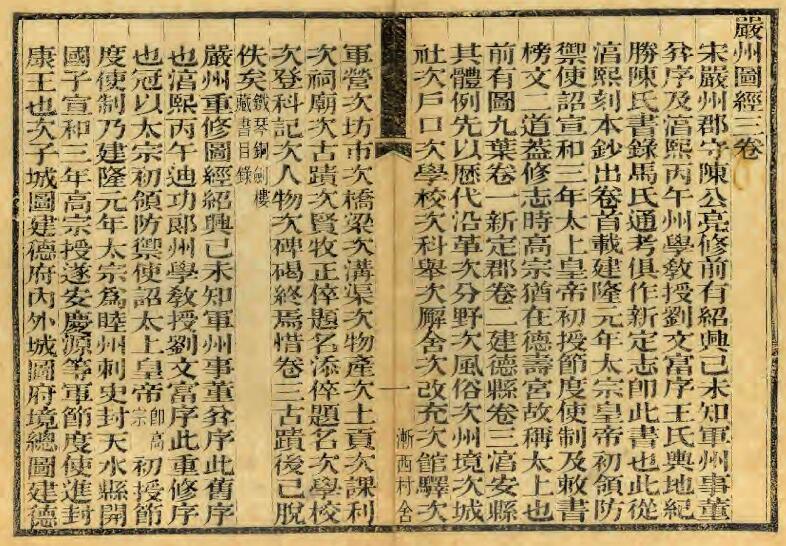 嚴州圖經三卷
宋嚴州郡守陳公亮修前有紹興己未知軍州事董
弅序及湻熙丙午州學敎授劉文富序王氏輿地紀
勝陳氏書錄馬氏通考俱作新定志卽此書也此從
湻熙刻本鈔出卷首載建隆元年太宗皇帝初領防
禦使詔宣和三年太上皇帝初授節度使制及敕書
榜文二道葢修志時高宗猶在德壽宮故稱太上也
前有圖九葉卷一新定郡卷二建德縣卷三湻安縣
其體例先以歷代沿革次分野次風俗次州境次城
社次戶口次學校次科舉次廨舍次改充次館驛次
一
漸西村舍
軍營次坊市次橋梁次溝渠次物產次土貢次課利
次祠廟次古蹟次賢牧正倅題名添倅題名次學校
次登科記次人物次碑碣終焉惜卷三古蹟後已脫
佚矣鐵琴銅劍樓藏書目錄
嚴州重修圖經紹興己未知軍州事董弅序此舊序
也湻熙丙午迪功郞州學敎授劉文富序此重修序
也冠以太宗初領防禦使詔太上皇帝卽高宗初授節
度使制乃建隆元年太宗爲睦州刺史封天水縣開
國子宣和三年高宗授遂安慶源等軍節度使進封
康王也次子城圖建德府內外城圖府境總圖建德